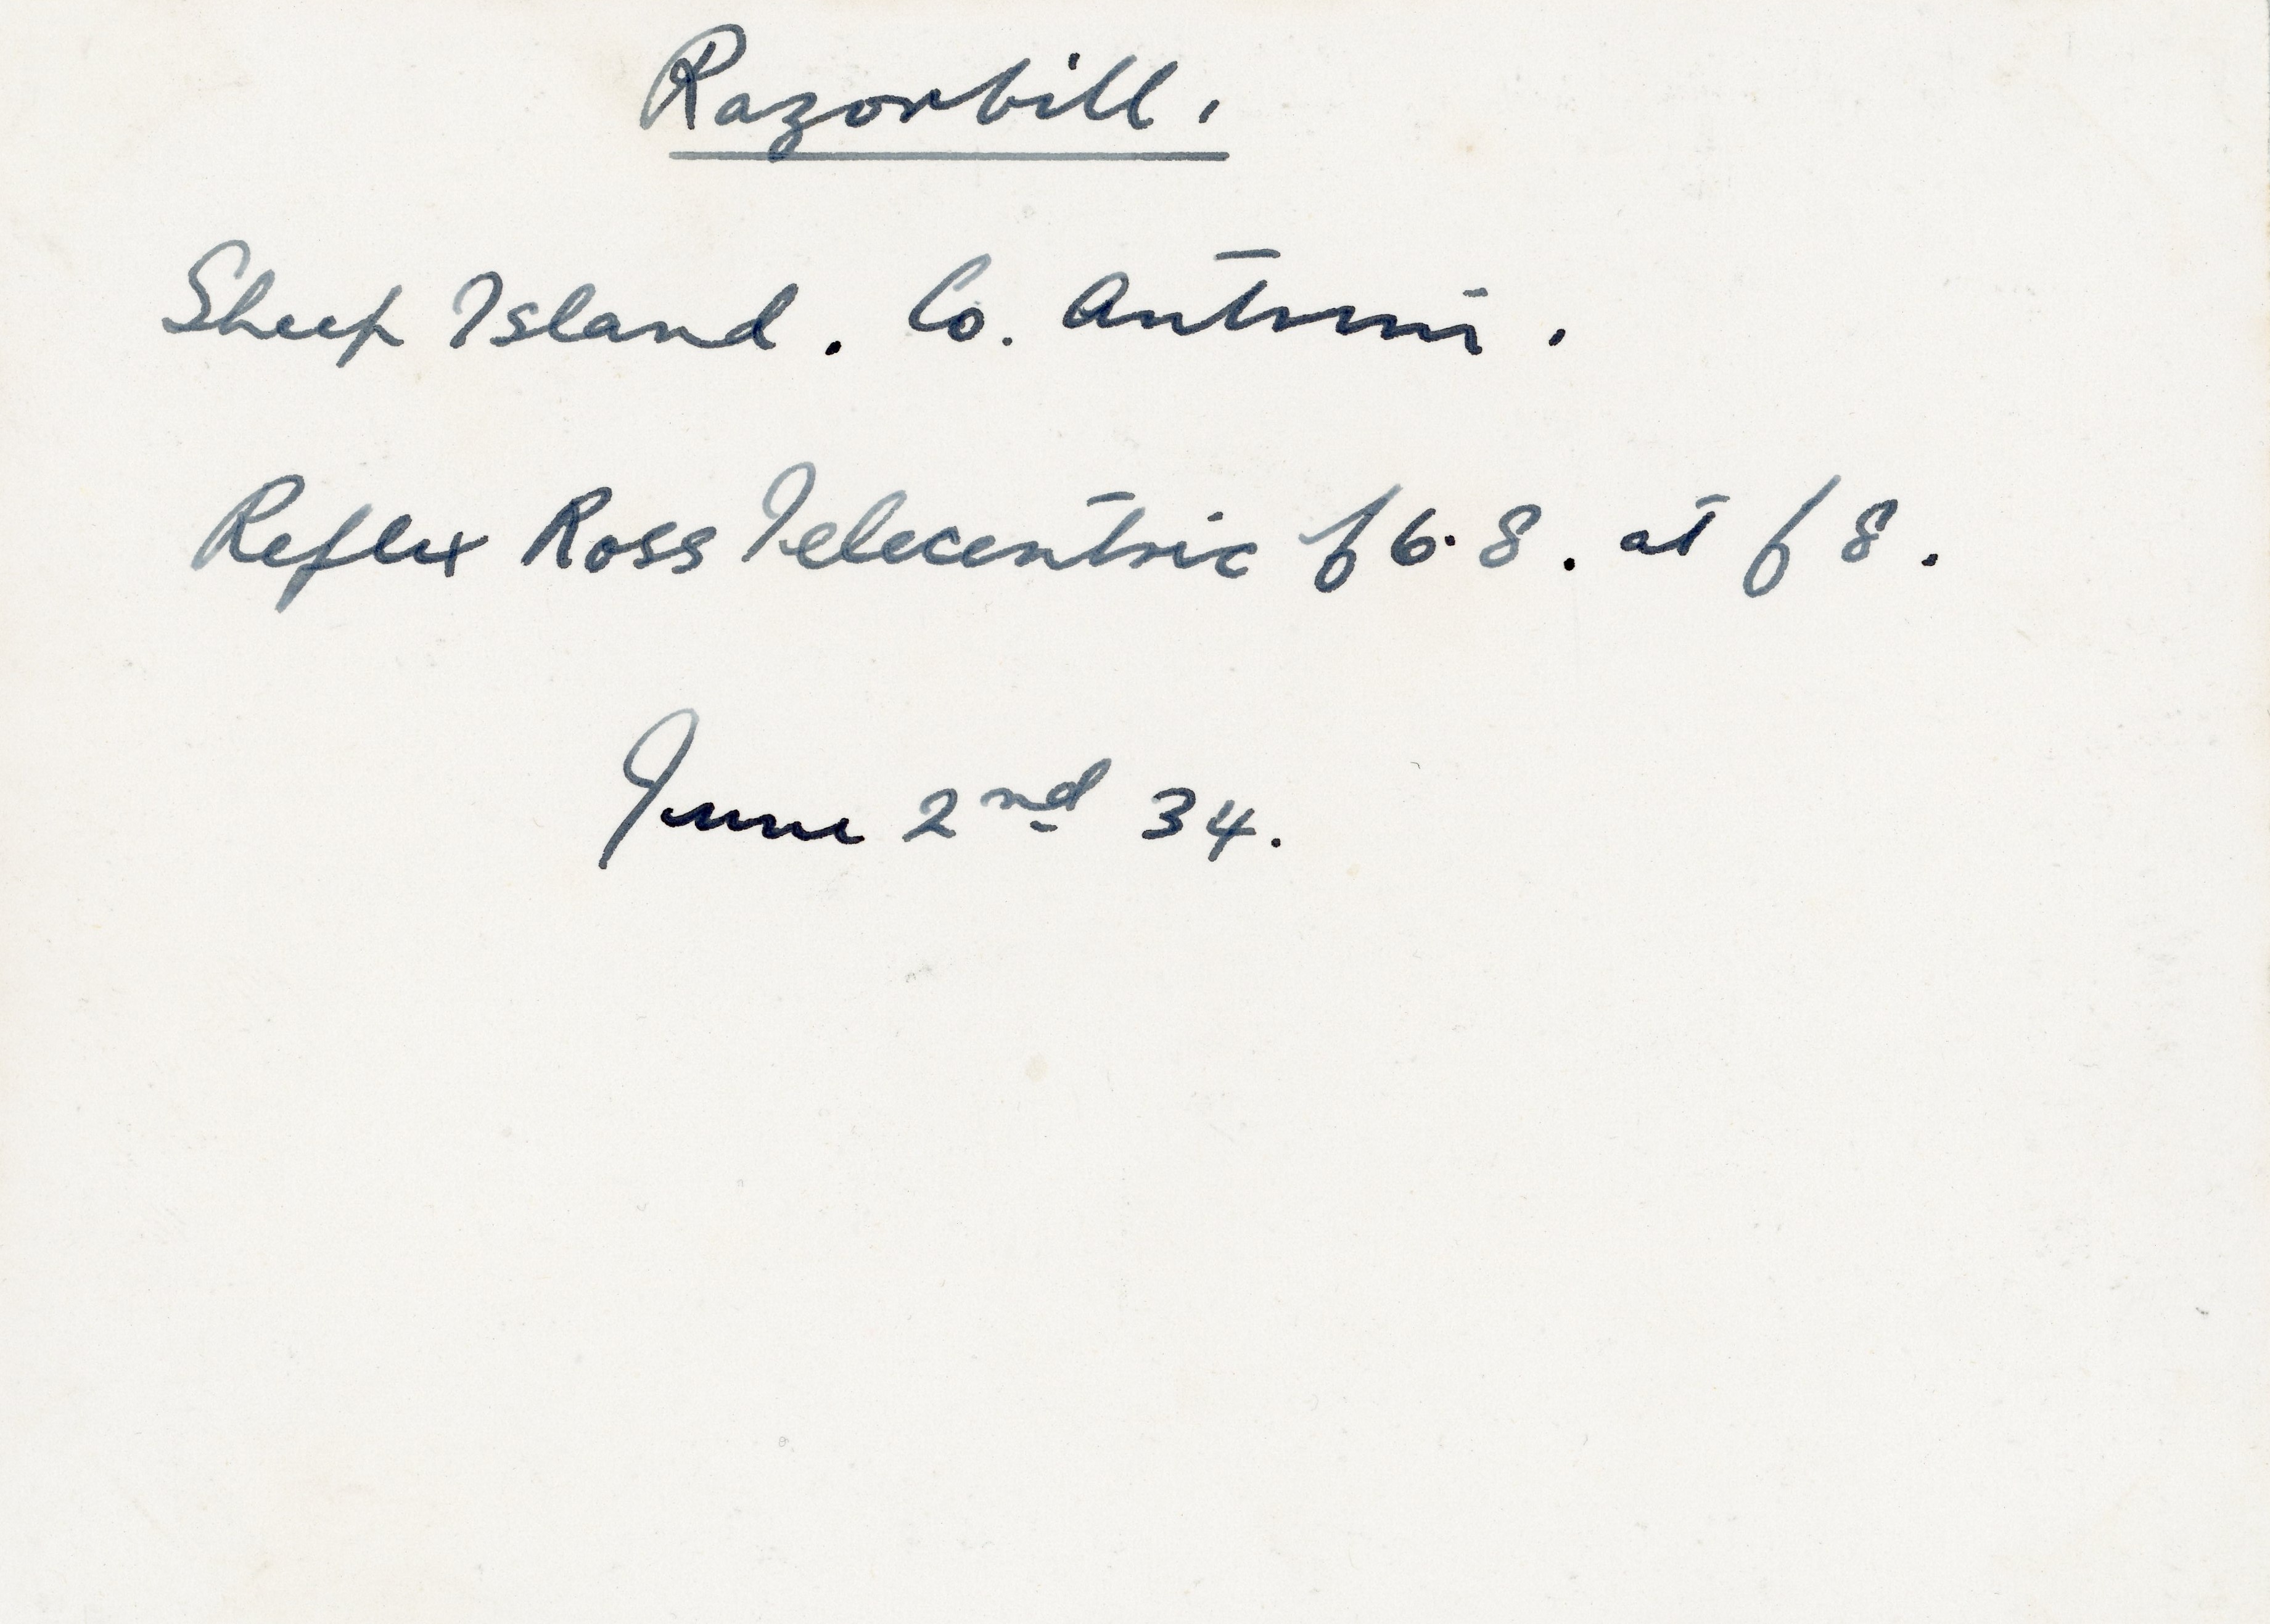 Razorbill.
Sheep Island. Co. Antrim.
Reflex Ross Telecentric f6.8. at f8.
June 2nd 34.